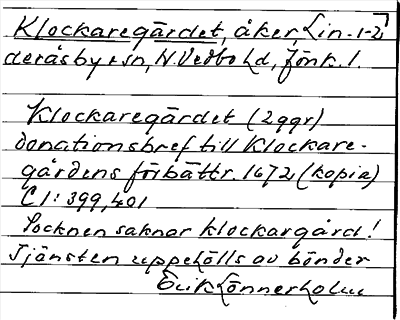 Klockaregärdet, åker, Lin- 1-2
deråsby o sn, N. Vedbo hd, Jönk. l.
Klockaregärdet (2 ggr)
donationsbref till Klockare-
gårdens förbättr. 1672 (kopia)
C I: 399, 401
Socknen saknar klockargård!
Tjänsten uppehölls av bönder
Erik Lönnerholm